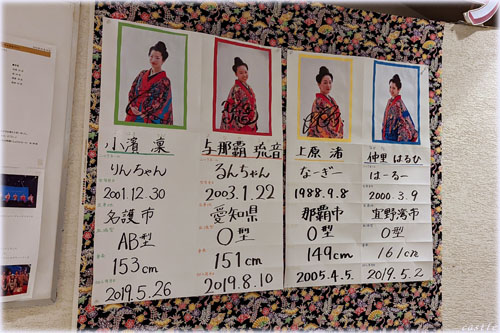 小濱 凜
りんちゃん
2001.12.30
名護市
AB型
153cm
2019.5.26
与那覇 琉音
るんちゃん
2003.1.22
愛知県
O型
151cm
2019.8.10
上原 渚
なーぎー
1988.9.8
那覇市
O型
149cm
2005.4.5.
仲里 はるひ
はーるー
2000.3.9
宜野湾市
O型
161cm
2019.5.2